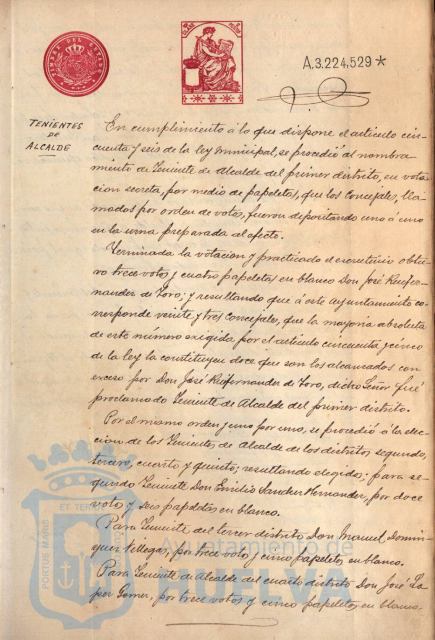 TIMBRE DEL ESTADO
A.3.224.529*
TENIENTES
DE
ALCALDE
En cumplimiento á lo que dispone el artículo cin-
cuenta y seis de la ley municipal, se procedió al nombra
miento de Teniente de Alcalde del primer distrito, en vota
cion secreta, por medio de papeletas, que los Concejales, lla-
mados por orden de votos, fueron depositando uno á uno
en la urna preparada al efecto.
Terminada la votacion y practicado el escrutinio obtu-
vo trece votos y cuatro papeletas en blanco Don José Ruifer-
nandez de Toro; y resultando que á este Ayuntamiento co-
rresponde veinte y tres Concejales, que la mayoria absoluta
de este número exigida por el artículo cincuenta y cinco
de la ley la constituyen doce que son los alcanzados con
exceso por Don José Ruifernandez de Toro, dicho Señor fué
proclamado Teniente de Alcalde del primer distrito.
Por el mismo orden y uno por uno, se procedió á la elec-
cion de los Tenientes de Alcalde de los distritos segundo,
tercero, cuarto y quinto; resultando elegidos: para se-
gundo Teniente Don Emilio Sanchez Hernandez, por doce
votos y seis papeletas en blanco.
Para Teniente del tercer distrito Don Manuel Domin-
guez Villegas, por trece voto y cinco papeletas en blanco.
Para Teniente de Alcalde del cuarto distrito Don José Lo-
pez Gomez, por trece votos y cinco papeletas en blanco.
PORTUS MARIS
ET TERRAE
Ayuntamiento de
HUELVA